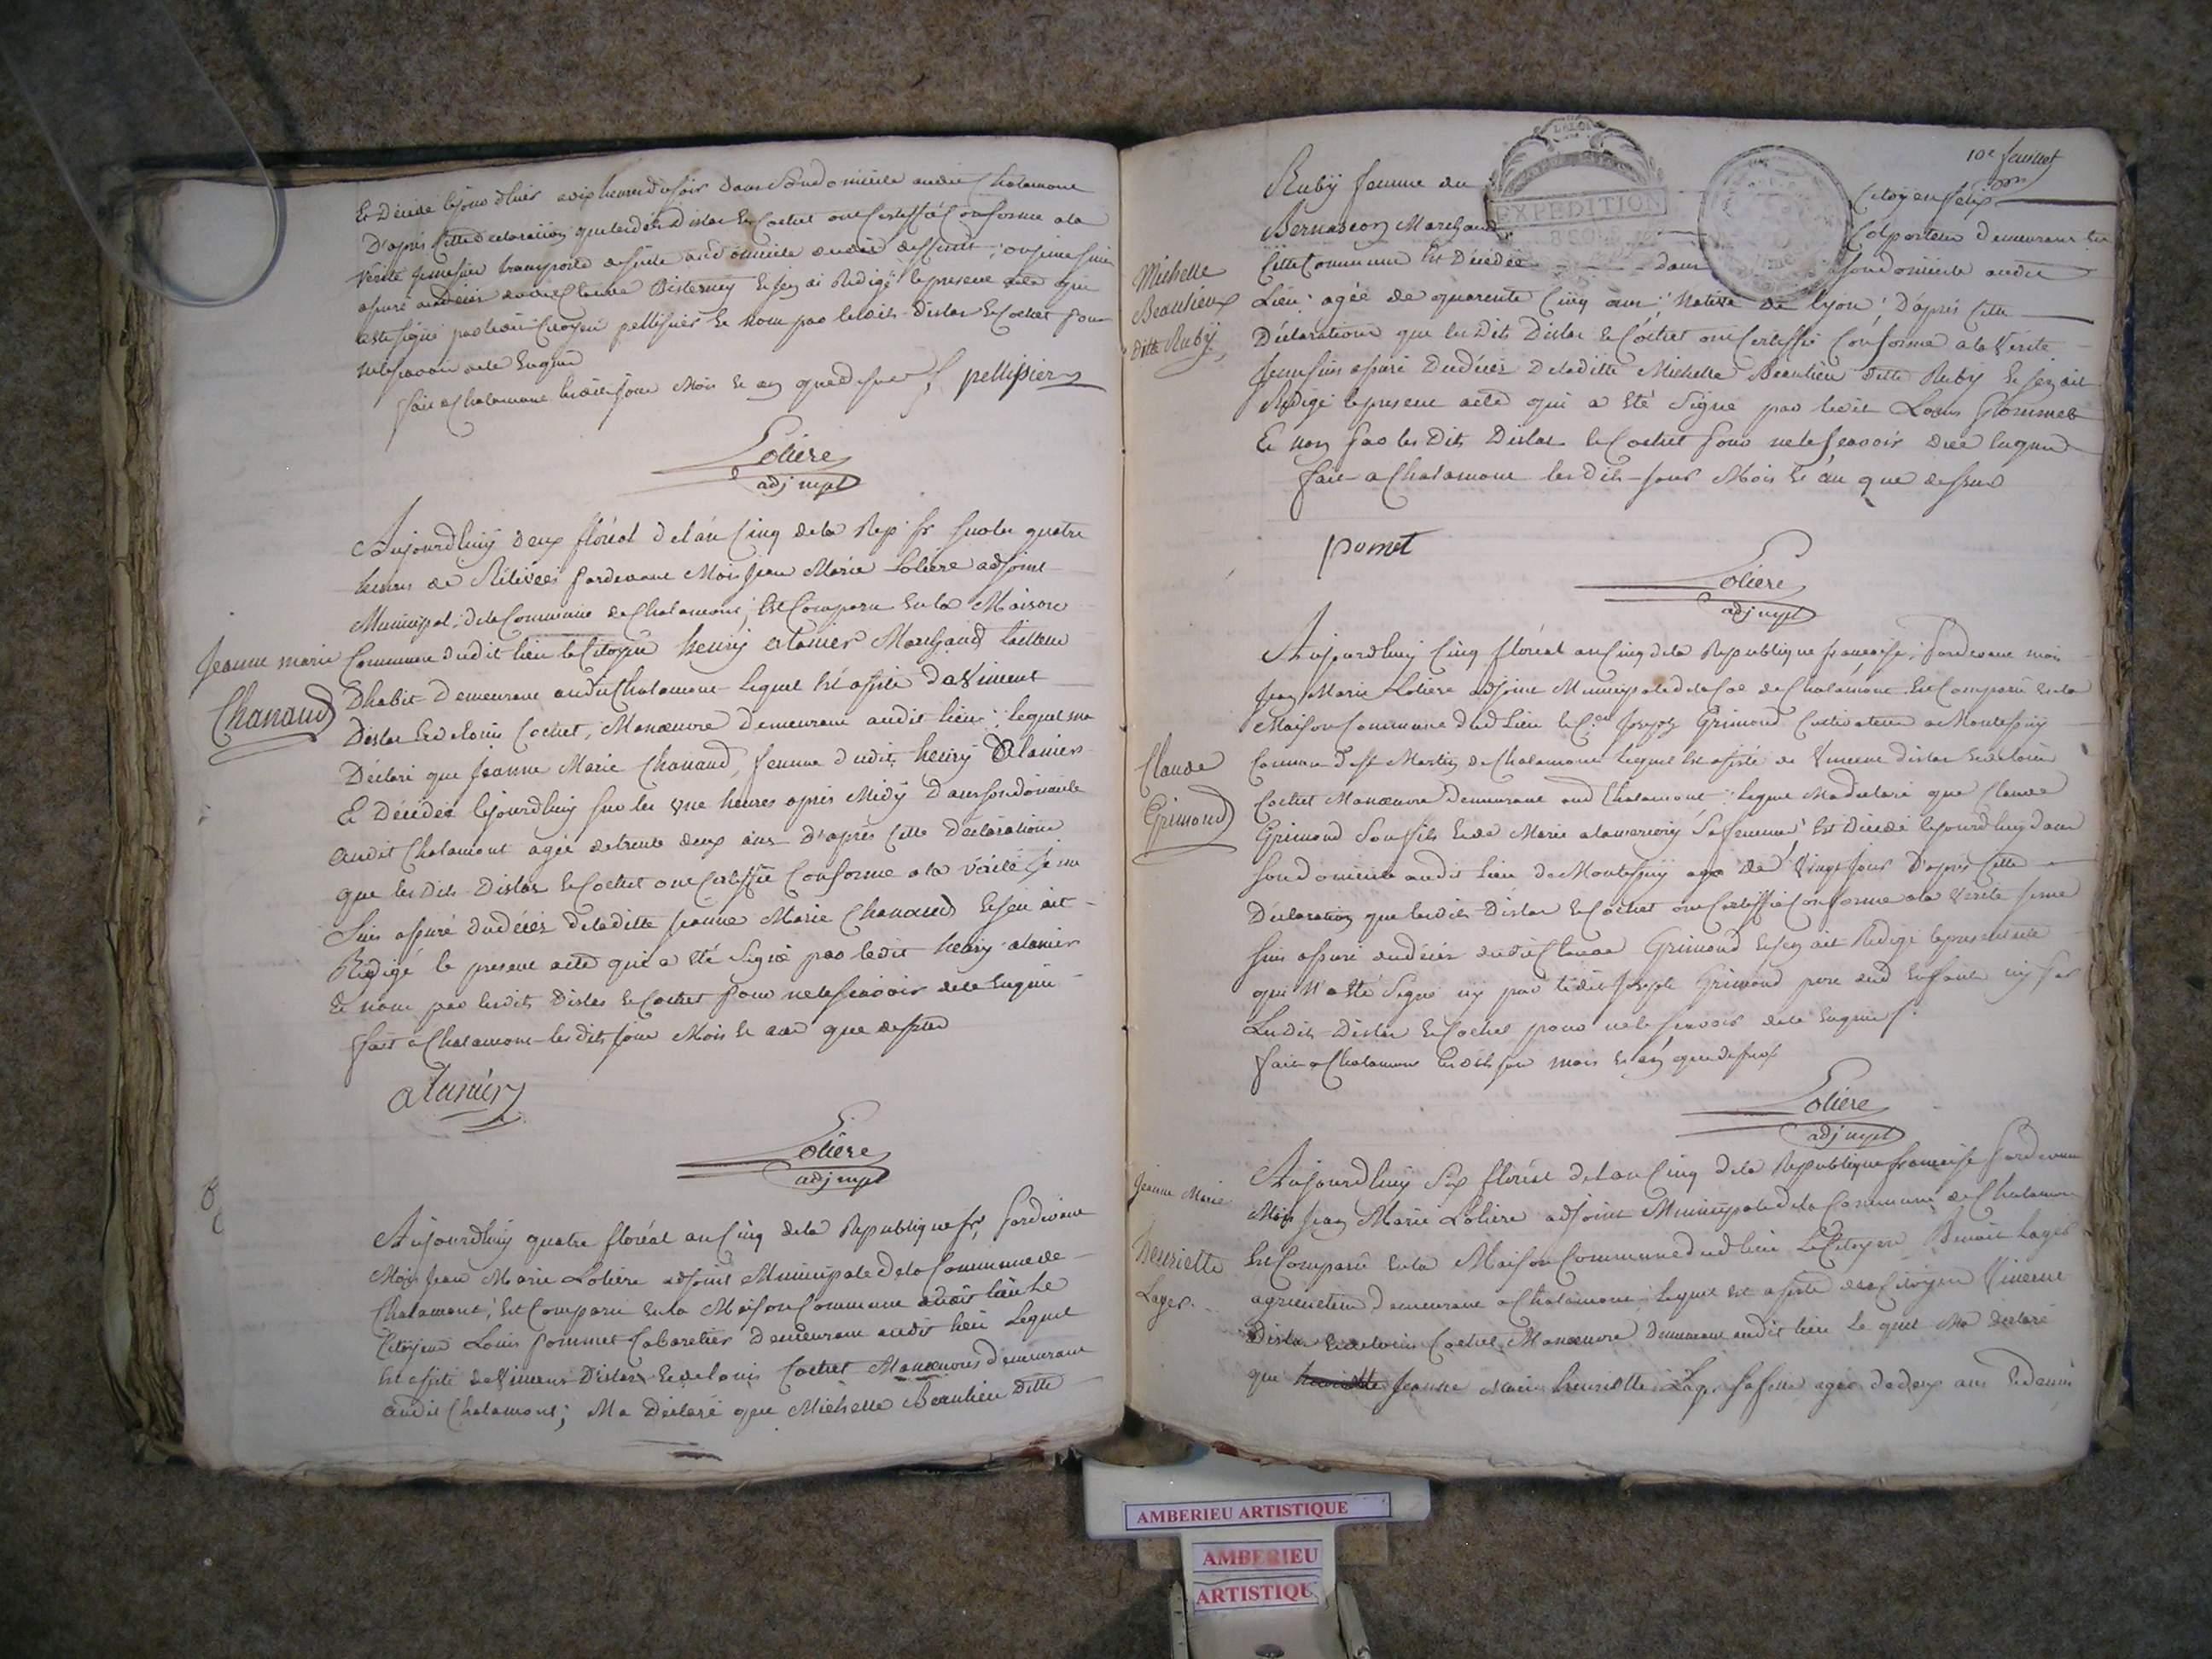 Et Décédé lejour dhier a dix heures du soir dans Son domicile audit Chalamont
D'après Cette declaration que lesdits Dislar Et Cochet ont Certiffié Conforme a la
vérité je me suis transporté de suite au domicile dudit deffunt, ou je me suis
assuré du déces dudit Claude Et j'en ai Rédigé le present acte qui
a esté signé par ledit Citoyen pellissier Et non par lesdits Dislar Et Cochet pour
ne le savoir de ce Enquis
fait a Chalamont lesdits jour Mois Et an que dessus pellissier
Lolière
adj mpl
Aujourdhuy deux floréal de l'an Cinq de la Rep fr sur les quatre
heures de Rélévées pardevant Moi Jean Marie Lolière adjoint
Municipal de la Commune de Chalamont, Est Comparu en la Maison
Jeanne marie
Chanaud
Commune dudit lieu le Citoyen henry alanier Marchand tailleur
Dhabit demeurant audit Chalamont lequel Est assisté de Vincent
Dislar Et de Louis Cochet, Manœuvre demeurant audit lieu, lequel ma
Déclaré que Jeanne Marie Chanaud, femme dudit henry alanier
Et Décédée lejourdhuy sur les Une heures après Midy dans son domicile
audit Chalamont agée de trente deux ans D'après Cette Déclaration
que lesdits Dislar Et Cochet ont Certiffié Conforme a la vérité je me
Suis assuré du déces de laditte Jeanne Marie Chanaud Et j'en ait
Rédigé le present acte qui a Eté Signé par ledit henry alanier
Et nom par lesdits Dislar Et Cochet pour ne le scavoir de ce Enquis
fait a Chalamont lesdits jour Mois Et an que dessus
alanier
Lolière
adj mpl
Aujourdhuy quatre floréal an Cinq de la Republique fr, pardevant
Moy Jean Marie Lolière adjoint Municipale de la Commune de
Chalamont, Est Comparu en la Maison Commune dudit lieu Le
Citoyen Louis pommet Cabaretier demeurant audit lieu Lequel
Est assisté de Vincent Dislar Et de Louis Cochet Manœuvres demeurant
audit Chalamont; Ma Déclaré que Michelle Beaulieu Ditte
10e feuillet
Ruby femme du Citoyen félix
EXPEDITION
Bernascon Marchand Colporteur demeurant en
Cette Commune Est Décédée dans son domicile audit
Michelle
Beaulieux
ditte Ruby
Lieu, agée de quarente Cinq ans, Native de lyon, D'après Cette
Déclaration que les Dits Dislar Et Cochet ont Certiffié Conforme a la Vérité
Je me suis assuré du déces de laditte Michelle Beaulieu ditte Ruby Et j'en ait
Rédigé le present acte qui a Eté Signé par ledit Louis Pommet
Et non par les Dits Dislar Et Cochet pour ne le scavoir de ce Enquis
fait a Chalamont lesdits jour Mois Et an que dessus
pomet
Lolière
adj mpl
Aujourdhuy Cinq floréal an Cinq de la Republique francaise, pardevant moi
Jean Marie Lolière adjoint Municipale de la Coe de Chalamont Est Comparu En la
Maison Commune dud Lieu le Cen Joseph Grimond Cultivateur a Montessuy
Claude
Grimond
Commune de St Martin de Chalamont lequel Est assisté de Vincent dislar Et de Louis
Cochet Manœuvre demeurant aud Chalamont, lequel Ma declaré que Claude
Grimond Son fils Et de Marie Sa femme, Est Décédé lejourdhuy dans
son domicile audit Lieu de Montessuy agé de Vingt jours D'après Cette
Déclaration que lesdits Dislar Et Cochet ont Certiffié Conforme a la Vérité je me
suis assuré du déces dudit Claude Grimond Et j'en ait Rédigé le present acte
qui N'a Eté Signé ny par ledit Joseph Grimond pere dud Enfant ny par
Lesdits Dislar Et Cochet pour ne le scavoir de ce Enquis
fait a Chalamont lesdits jour mois Et an que dessus
Lolière
adj mpl
Jeanne Marie
henriette
Layer
Aujourdhuy Six floréal de l'an Cinq de la Republique francaise pardevant
Moi Jean Marie Lolière adjoint Municipale de la Commune de Chalamont
Est Comparu En la Maison Commune dud lieu Le Citoyen Benoit Layer
agriculteur demeurant a Chalamont lequel est assisté des Citoyen Vincent
Dislar Et de Louis Cochet Manœuvre demeurant audit lieu Le quel Ma declaré
que henriette Jeanne Marie henriette Layer sa fille agée de deux ans Et demis
AMBERIEU ARTISTIQUE
AMBERIEU
ARTISTIQU